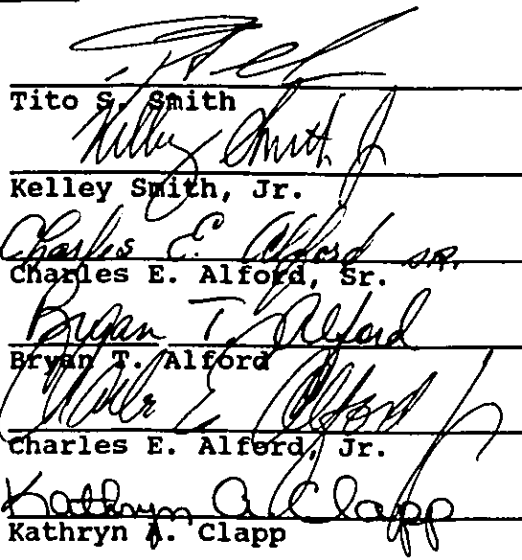 Tito S. Smith
Kelley Smith Jr
Kelley Smith, Jr.
Charles E. Alford SR.
Charles E. Alford, Sr.
Bryan T. Alford
Bryan T. Alford
Charles E Alford Jr
Charles E. Alford, Jr.
Kathryn A. Clapp
Kathryn A. Clapp